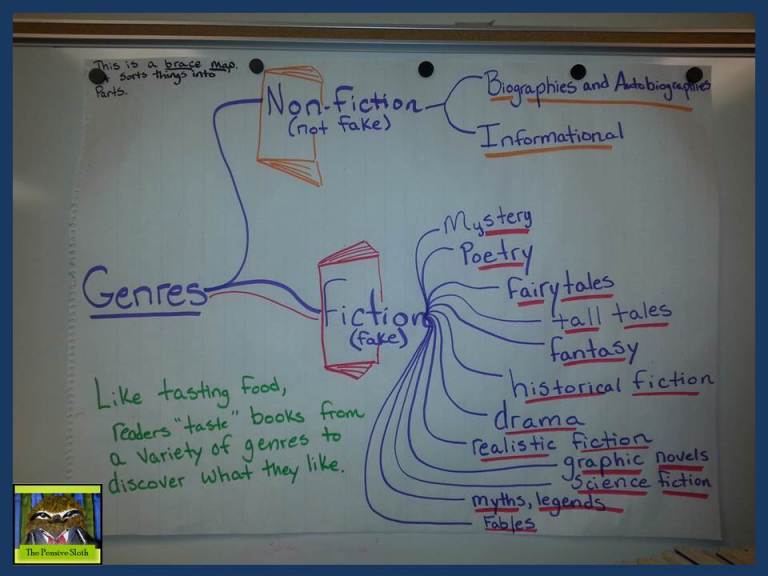 This is a brace map.
It sorts things into
Parts.
Non-fiction
(not fake)
Biographies and Autobiographies
Informational
Genres
Fiction
(fake)
Mystery
Poetry
fairytales
tall tales
fantasy
historical fiction
drama
realistic fiction
graphic novels
science fiction
myths, legends
Fables
Like tasting food,
readers "taste" books from
a variety of genres to
discover what they like.
The Pensive Sloth